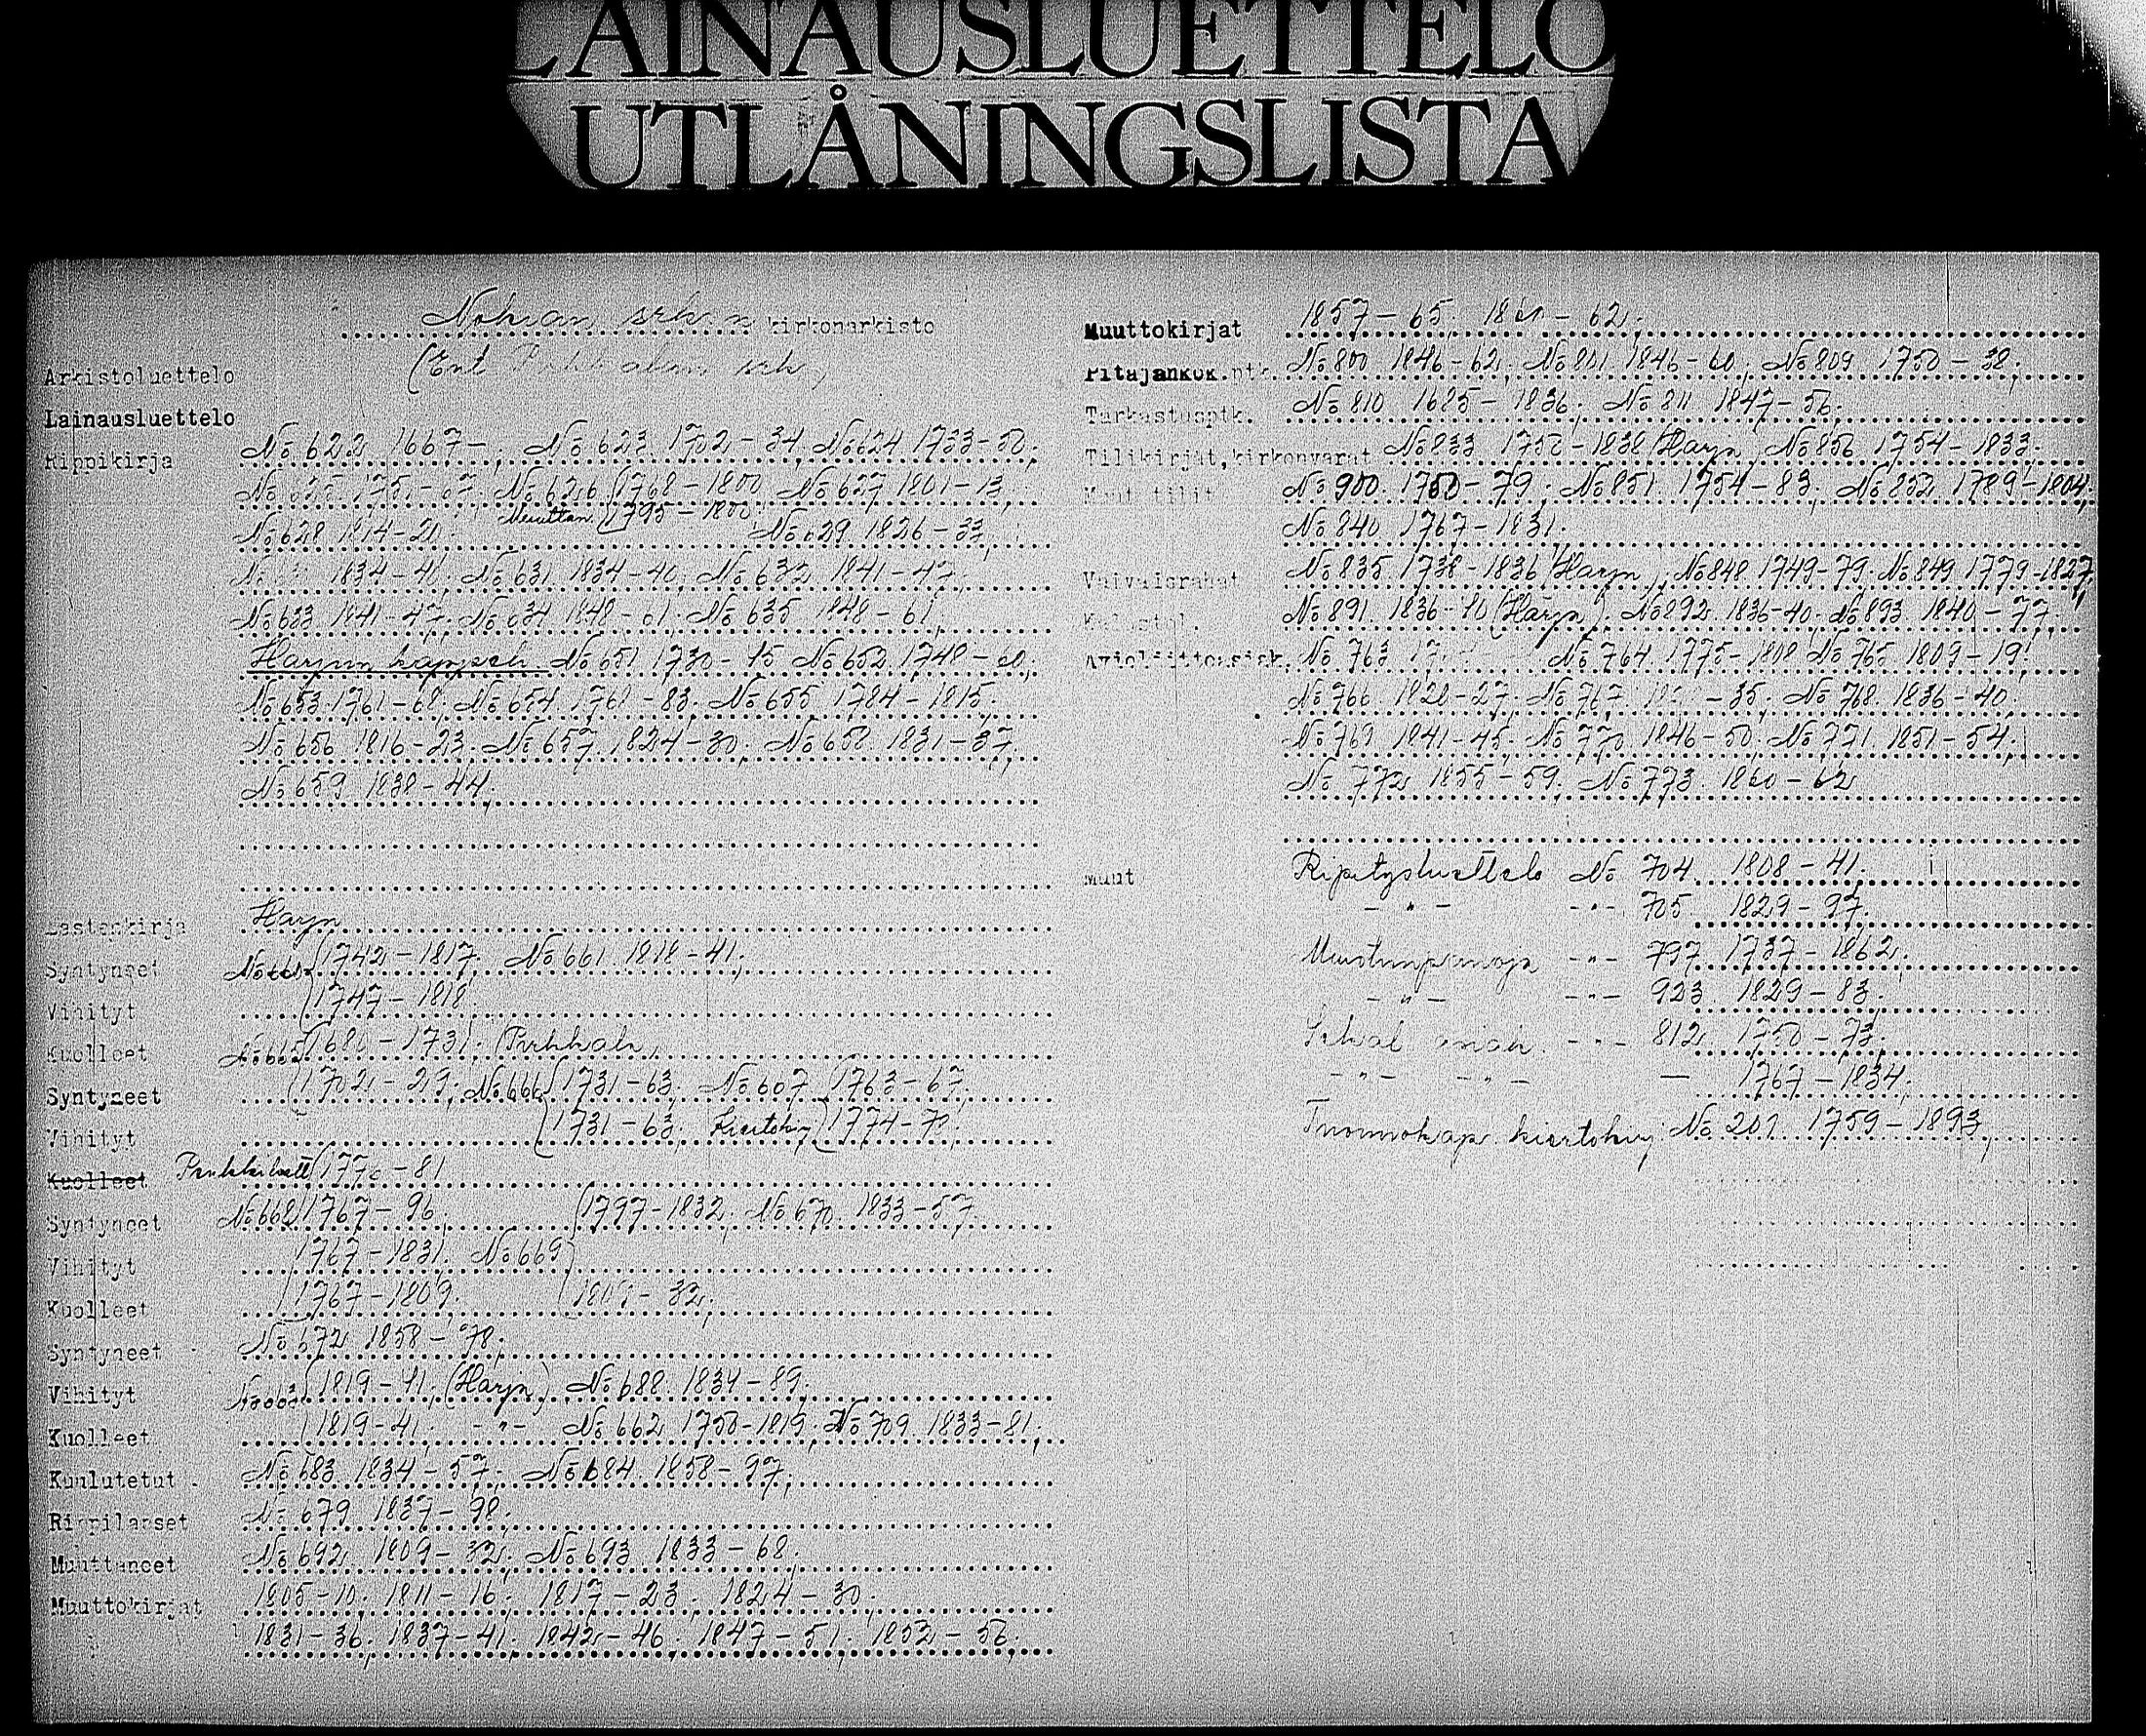 LAINAUSLUETTELO
UTLÅNINGSLISTA
Nokian srk:n kirkonarkisto
Arkistoluettelo (Ent Pirkkalan srk)
Lainausluettelo
Rippikirja No 622 1667-; No 623 1702-34, No 624 1733-50;
1751-67. No 626 1768-1800 No 627 1801-13,
No 628 1814-20. Muuttan. 1795-1800. No 629 1826-33,
1834-40; No 631 1834-40; No 632 1841-47,
No 633 1841-47; No 634 1848-61. No 635 1848-61,
Harjun kappeli No 651 1730-45 No 652 1748-60;
No 653 1761-68; No 654 1761-83; No 655 1784-1815;
No 656 1816-23. No 657 1824-30; No 658 1831-37,
No 659 1838-44;
Lastenkirja Harjn
Syntyneet No 660 1742-1817; No 661 1818-41;
Vihityt 1747-1818
Kuolleet No 665 1680-1731; (Pirkkala)
Syntyneet 1702-29; No 666 1731-63; No 667 1763-67.
Vihityt 1731-63; Kiertokirj 1774-70
Kuolleet 1770-81
Syntyneet No 668 1767-96; 1797-1832; No 670 1833-57
Vihityt 1767-1831. No 669
Kuolleet 1767-1809; -32;
Syntyneet No 672 1858-78;
Vihityt No 663 1819-41; (Harjn) No 688 1834-89;
Kuolleet 1819-41; -"- No 662 1750-1819; No 709 1833-81;
Kuulutetut No 683 1834-57; No 684 1858-97;
Rippilapset No 679 1837-98;
Muuttaneet No 692 1809-32; No 693 1833-68;
Muuttokirjat 1805-10; 1811-16; 1817-23; 1824-30;
1831-36; 1837-41; 1842-46; 1847-51; 1852-56;
Muuttokirjat 1857-65; 1861-62;
Pitäjänkok.ptk. No 800 1846-62; No 801 1846-60; No 809 1750-38;
Tarkastusptk. No 810 1685-1836; No 811 1847-56;
Tilikirjat, kirkonvarat No 833 1750-1838 (Harjn) No 850 1754-1833;
Muut tilit No 900 1750-79; No 851 1754-83; No 852 1789-1804,
No 840 1767-1831.
Vaivaisrahat No 835 1738-1836 (Harjn); No 848 1749-79; No 849 1779-1827,
No 891 1836-40 (Harjn); No 892 1836-40; No 893 1840-77;
Avioliittoasiak. No 763 No 764 1775-1808 No 765 1809-19;
No 766 1820-27; No 767 -35; No 768 1836-40.
No 769 1841-45; No 770 1846-50; No 771 1851-54;
No 772 1855-59; No 773 1860-62
Muut Ripitysluettelo No 704 1808-41.
-"- -"- 705 1829-97.
Muistiinpanoja -"- 797 1737-1862.
-"- -"- 923 1829-83.
Sekal asiak. -"- 812 1750-73.
-"- -"- — 1767-1834.
Tuomiokap. kiertokirj No 201 1759-1893,